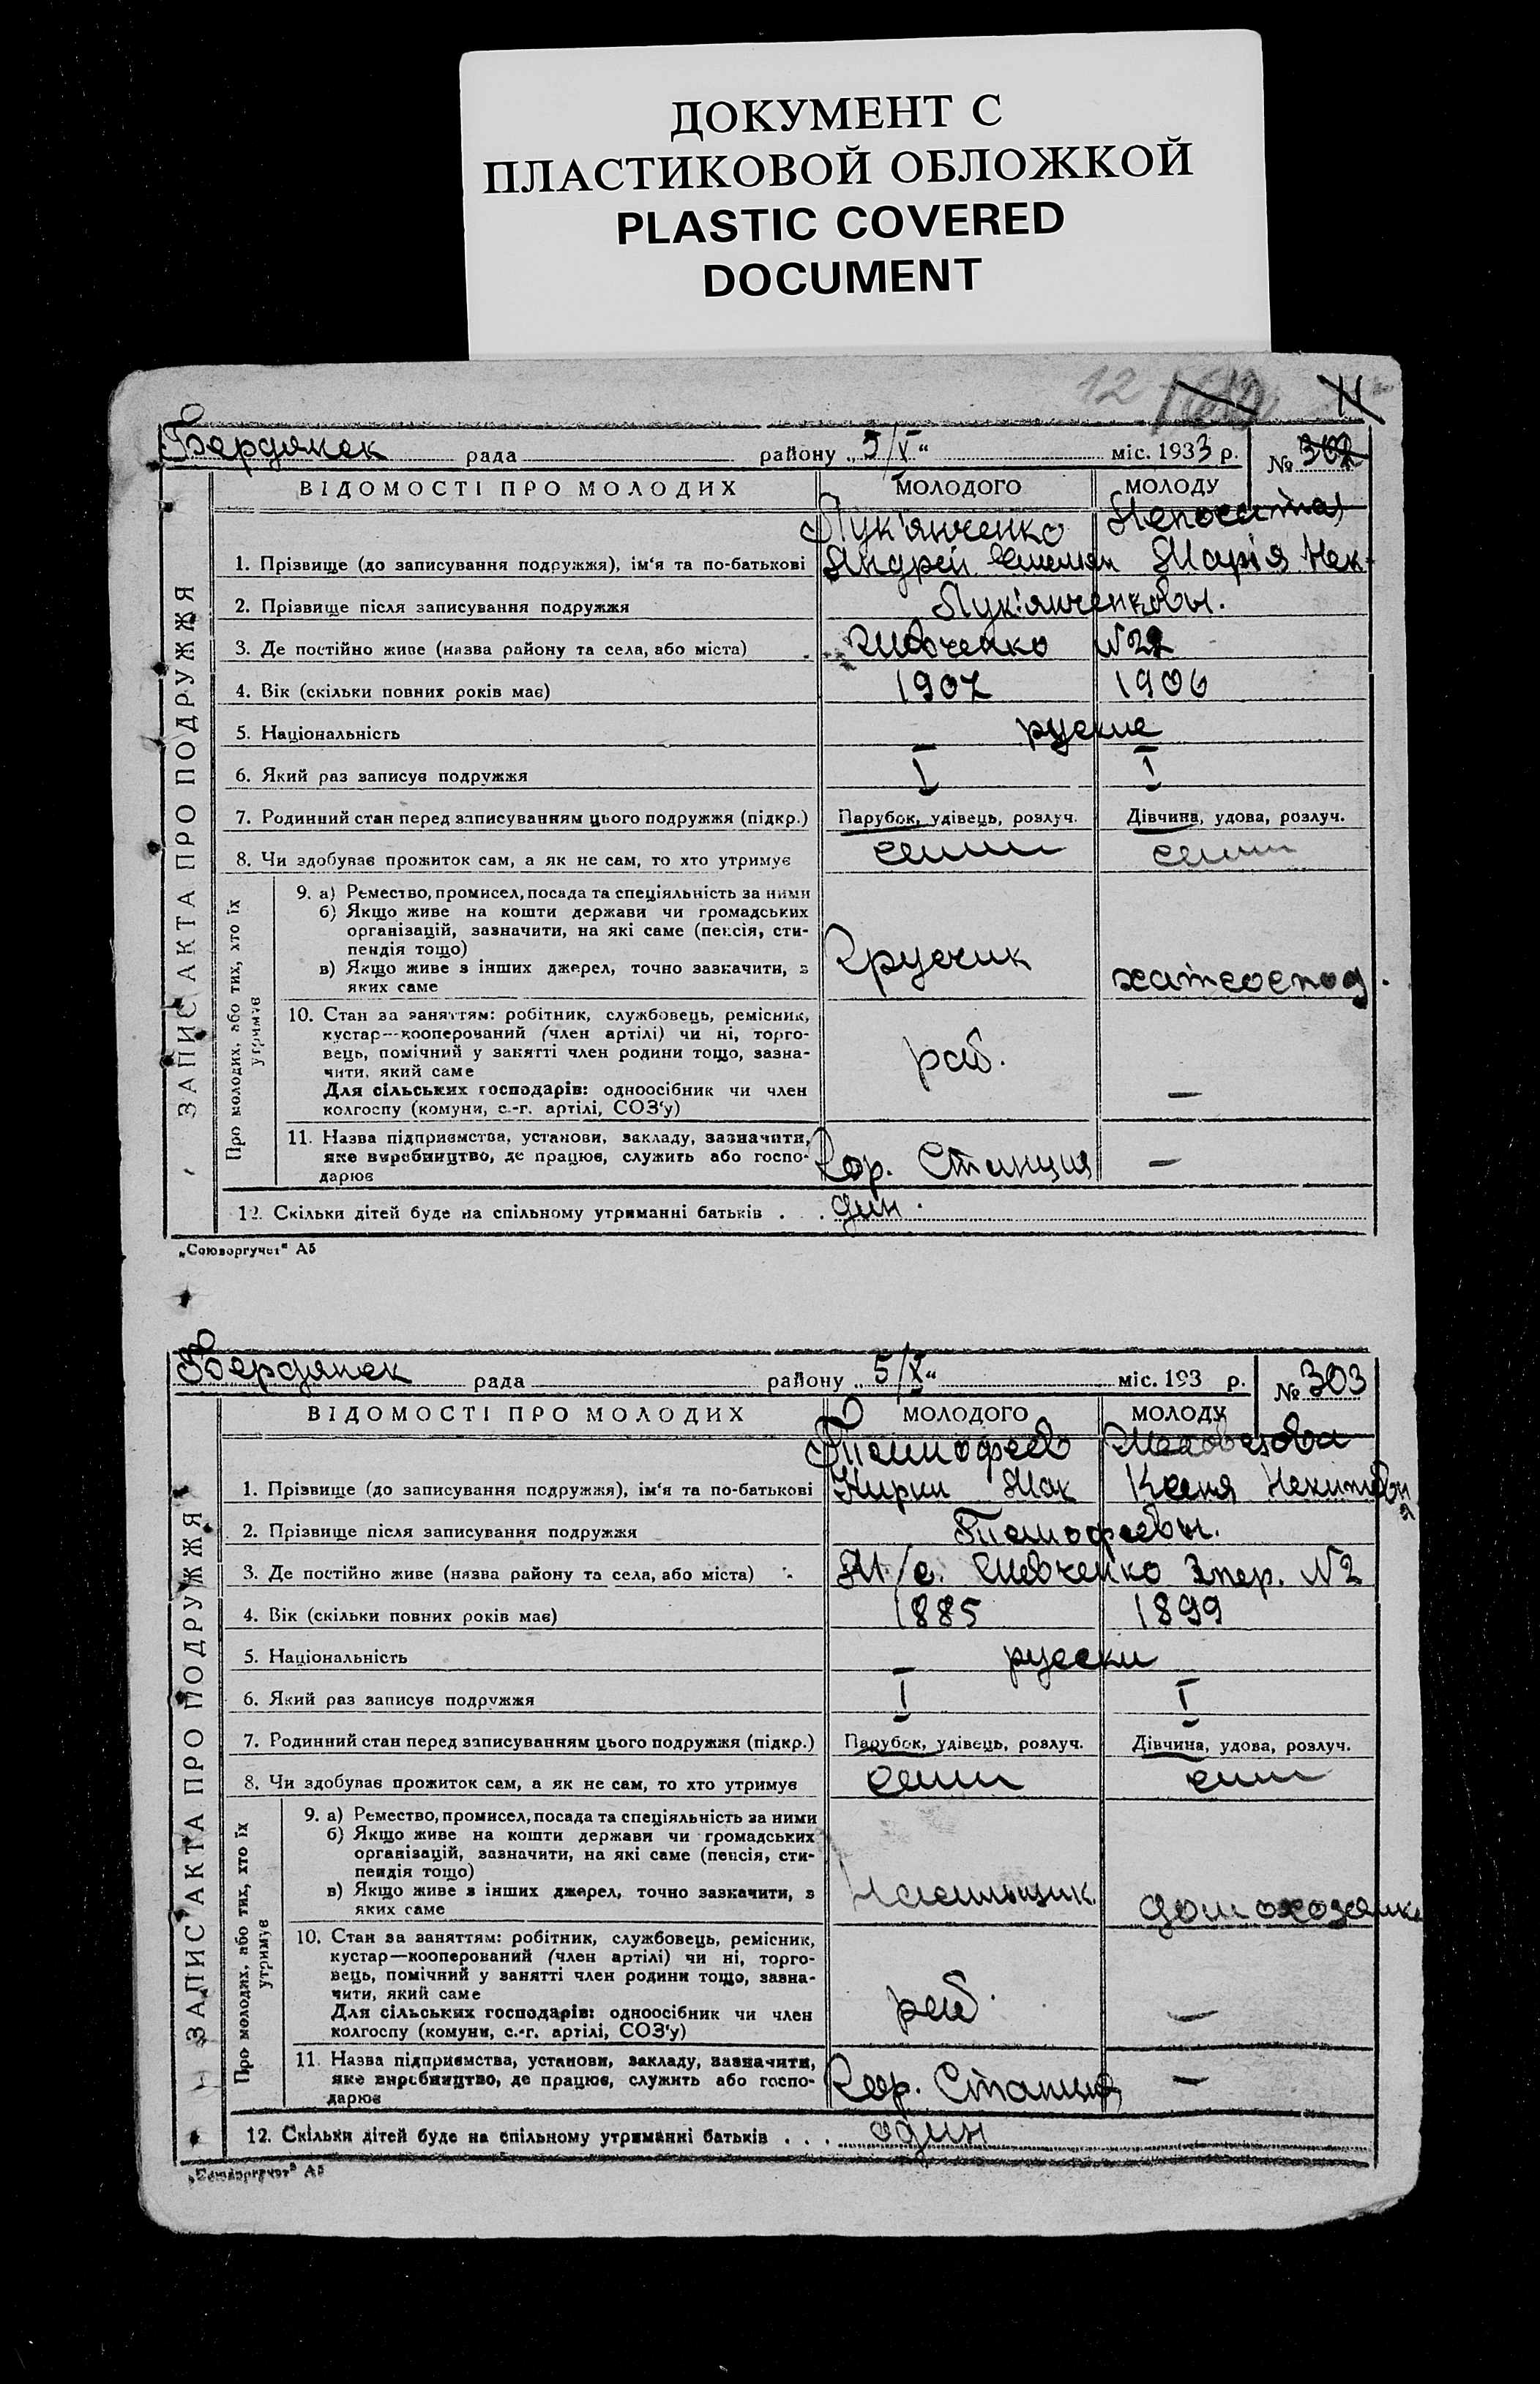 ДОКУМЕНТ С
ПЛАСТИКОВОЙ ОБЛОЖКОЙ
PLASTIC COVERED
DOCUMENT
12
11
Бердянск рада району „5/V“ міс. 1933 р. № 302
ВІДОМОСТІ ПРО МОЛОДИХ МОЛОДОГО МОЛОДУ
Лук'янченко
1. Прізвище (до записування подружжя), ім'я та по-батькові Андрей Марія Нек
2. Прізвище після записування подружжя Лук'янченковы.
3. Де постійно живе (назва району та села, або міста) Шевченко №22
4. Вік (скільки повних років має) 1907 1906
5. Національність руские
6. Який раз записує подружжя I I
7. Родинний стан перед записуванням цього подружжя (підкр.) Парубок, удівець, розлуч. Дівчина, удова, розлуч.
8. Чи здобував прожиток сам, а як не сам, то хто утримує
ЗАПИС АКТА ПРО ПОДРУЖЖЯ
Про молодих, або тих, хто їх утримує
9. а) Ремество, промисел, посада та спеціяльність за ними
б) Якщо живе на кошти держави чи громадських
організацій, зазначити, на які саме (пенсія, сти-
пендія тощо)
в) Якщо живе з інших джерел, точно зазначити, з
яких саме
Грузчик
хатгоспод.
10. Стан за заняттям: робітник, службовець, ремісник,
кустар—кооперований (член артілі) чи ні, торго-
вець, помічний у занятті член родини тощо, зазна-
чити, який саме
Для сільських господарів: одноосібник чи член
колгоспу (комуни, с.-г. артілі, СОЗ'у)
раб. —
11. Назва підприємства, установи, закладу, зазначити,
яке виробництво, де працює, служить або госпо-
дарює
Станция —
12. Скільки дітей буде на спільному утриманні батьків . .
„Союзоргучет“ А5
Бердянск рада району „5/V“ міс. 193 р. № 303
ВІДОМОСТІ ПРО МОЛОДИХ МОЛОДОГО МОЛОДУ
Тимофеев
1. Прізвище (до записування подружжя), ім'я та по-батькові Кирил Мак Ксеня Некитовн
2. Прізвище після записування подружжя Тимофеевы.
3. Де постійно живе (назва району та села, або міста) М/с. Шевченко 3 пер. №2
4. Вік (скільки повних років має) 1885 1899
5. Національність русски
6. Який раз записує подружжя I I
7. Родинний стан перед записуванням цього подружжя (підкр.) Парубок, удівець, розлуч. Дівчина, удова, розлуч.
8. Чи здобував прожиток сам, а як не сам, то хто утримує
ЗАПИС АКТА ПРО ПОДРУЖЖЯ
Про молодих, або тих, хто їх утримує
9. а) Ремество, промисел, посада та спеціяльність за ними
б) Якщо живе на кошти держави чи громадських
організацій, зазначити, на які саме (пенсія, сти-
пендія тощо)
в) Якщо живе з інших джерел, точно зазначити, з
яких саме
домохозяйка
10. Стан за заняттям: робітник, службовець, ремісник,
кустар—кооперований (член артілі) чи ні, торго-
вець, помічний у занятті член родини тощо, зазна-
чити, який саме
Для сільських господарів: одноосібник чи член
колгоспу (комуни, с.-г. артілі, СОЗ'у)
раб. —
11. Назва підприємства, установи, закладу, зазначити,
яке виробництво, де працює, служить або госпо-
дарює
Станция —
12. Скільки дітей буде на спільному утриманні батьків . . . один
„Союзоргучет“ А5